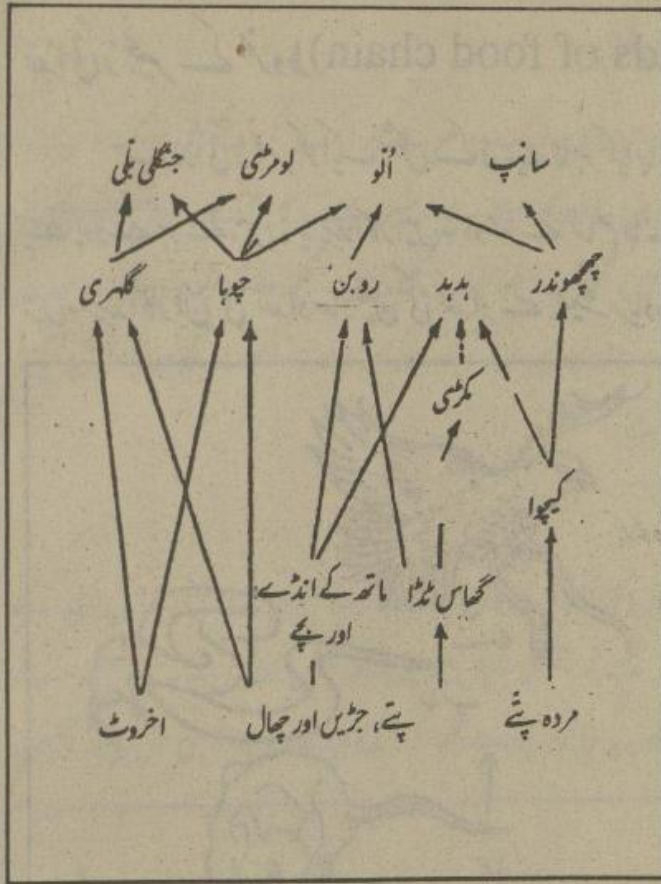 ds of food chain)
سانپ اُلو لومڑی جنگلی بلّی
چھچھوندر ہدہد روبن چوہا گلہری
مکڑی
کیچوا
گھاس ٹڈّا ماتھ کے انڈے
اور بچے
مردہ پتّے پتے، جڑیں اور چھال اخروٹ